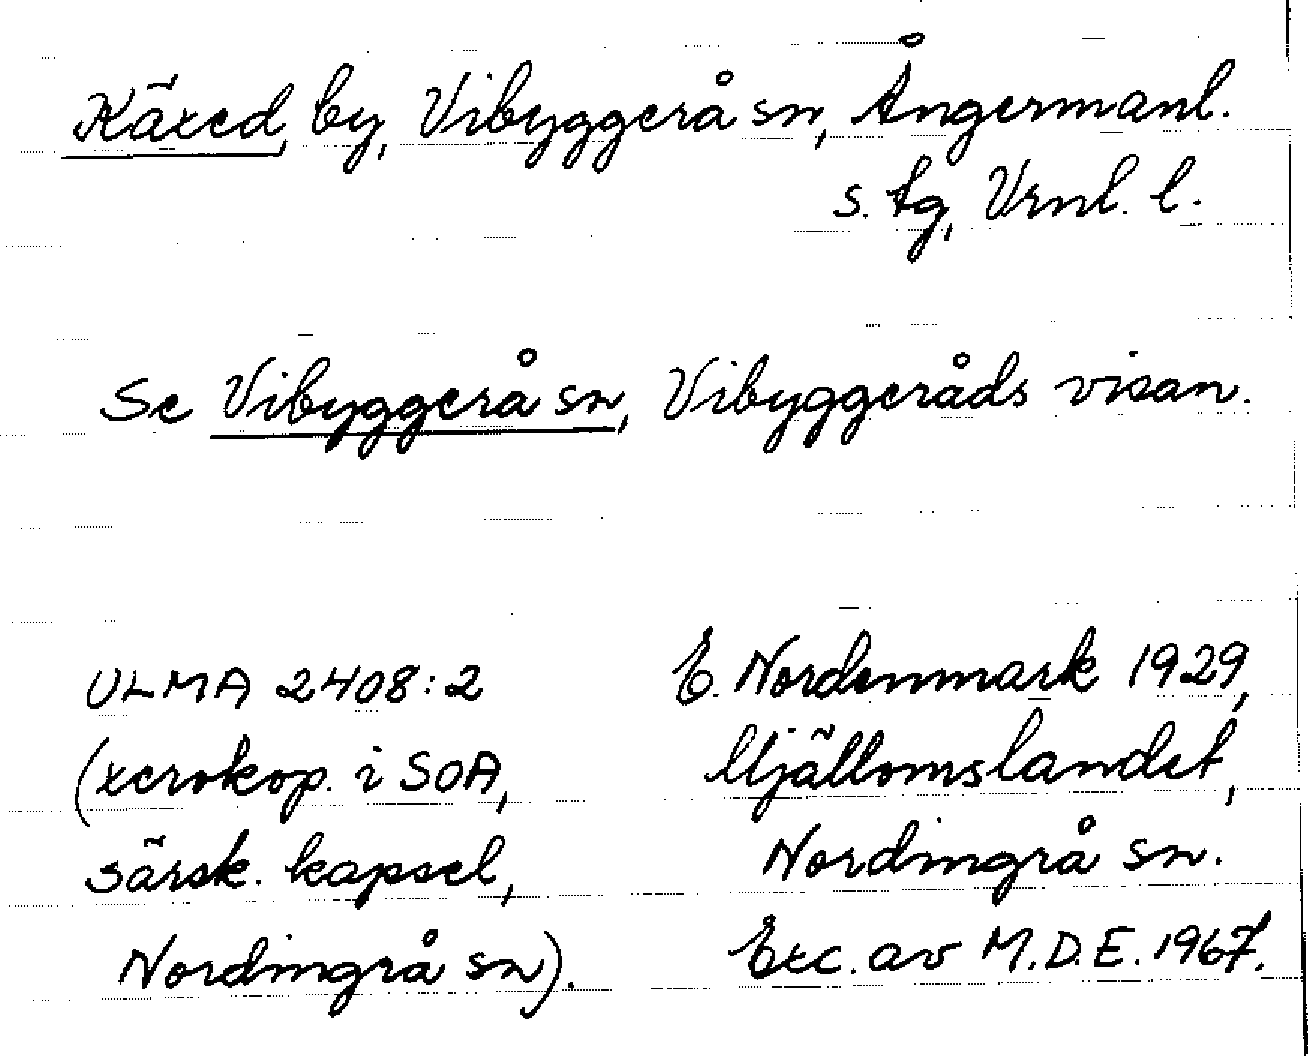 Käxed, by, Vibyggerå sn, Ångermanl.
s. tg, Vrnl. l.
Se Vibyggerå sn, Vibyggeråds visan.
ULMA 2408:2
(xerokop. i SOA,
särsk. kapsel,
Nordingrå sn).
E. Nordenmark 1929,
Mjällomslandet,
Nordingrå sn.
Exc. av M.D.E. 1967.